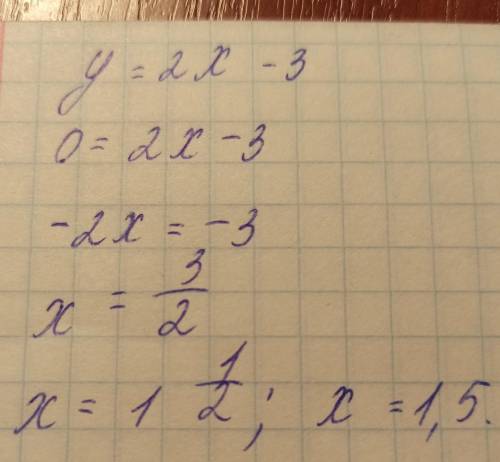 y = 2x - 3
0 = 2x - 3
-2x = -3
x = 3/2
x = 1 1/2; x = 1,5.